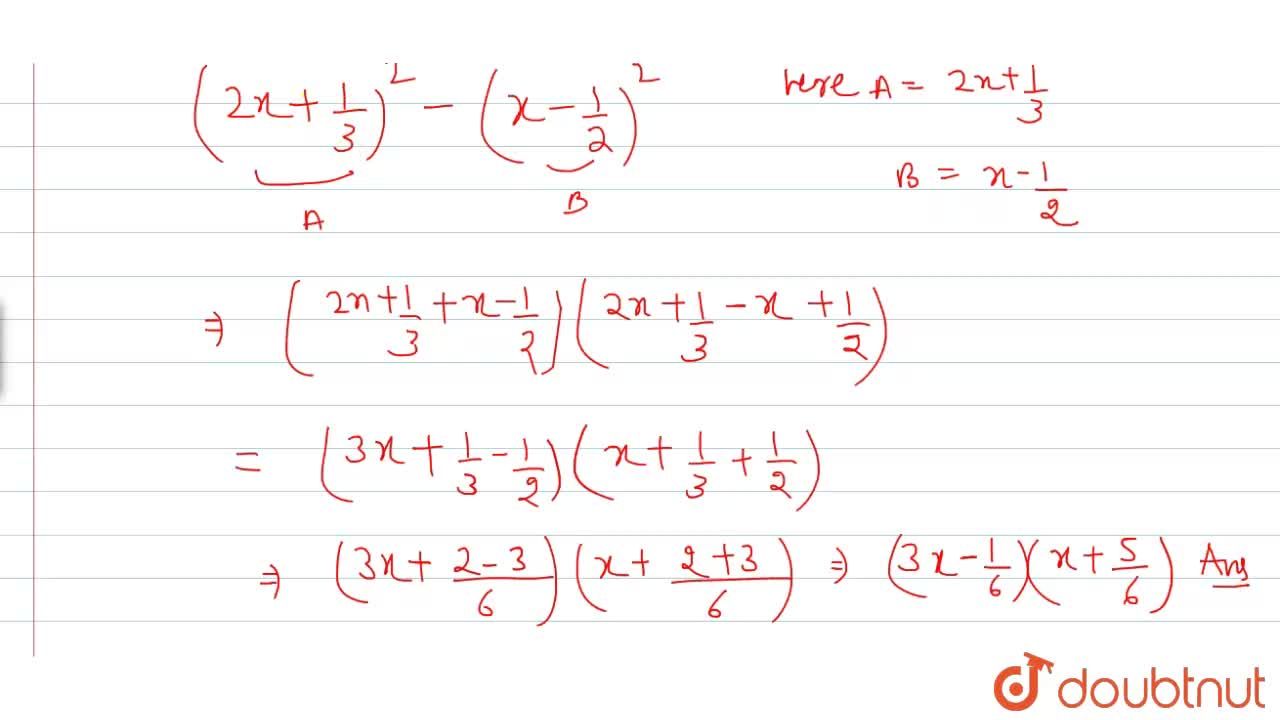 (2x + 1/3)² - (x - 1/2)² here A = 2x + 1/3
A B B = x - 1/2
⇒ (2x + 1/3 + x - 1/2) (2x + 1/3 - x + 1/2)
= (3x + 1/3 - 1/2) (x + 1/3 + 1/2)
⇒ (3x + 2-3/6) (x + 2+3/6) ⇒ (3x - 1/6)(x + 5/6) Ans
doubtnut